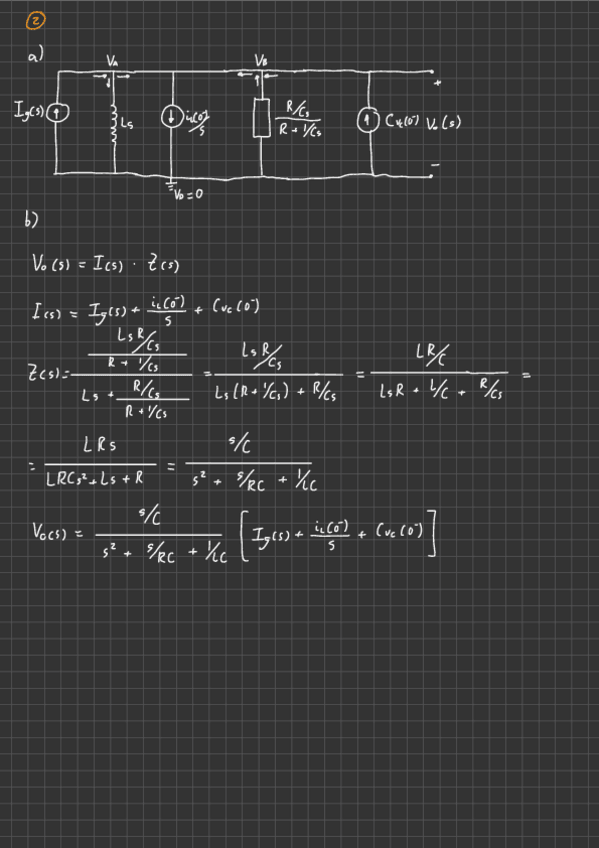 2
a)
V_A V_B
I_g(s) Ls i_L(0⁻)/s (R/Cs)/(R + 1/Cs) Cv_c(0⁻) + V_o(s) −
V_0 = 0
b)
V_o(s) = I(s) · Z(s)
I(s) = I_g(s) + i_L(0⁻)/s + Cv_c(0⁻)
Z(s) = ((LsR/Cs)/(R + 1/Cs))/(Ls + (R/Cs)/(R + 1/Cs)) = (LsR/Cs)/(Ls(R + 1/Cs) + R/Cs) = (LR/C)/(LsR + L/C + R/Cs) =
= LRs/(LRCs² + Ls + R) = (s/C)/(s² + s/RC + 1/LC)
V_o(s) = (s/C)/(s² + s/RC + 1/LC) [I_g(s) + i_L(0⁻)/s + Cv_c(0⁻)]